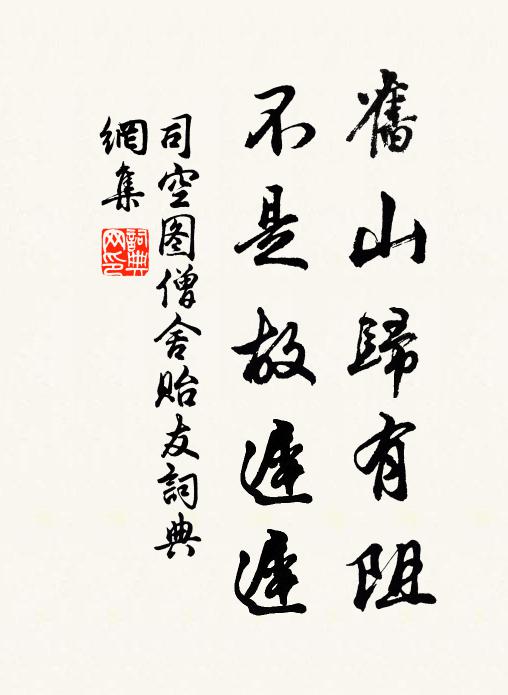 舊山歸有阻
不是故遲遲
司空图僧舍貽友詞典
網集
詞典
网印